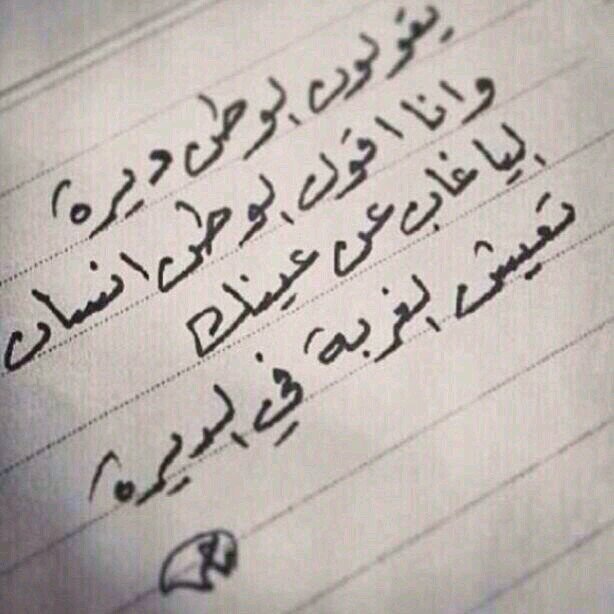 يقولون الوطن ديرة
وانا اقول الوطن انسان
ليا غاب عن عينك
تعيش الغربة في الديرة